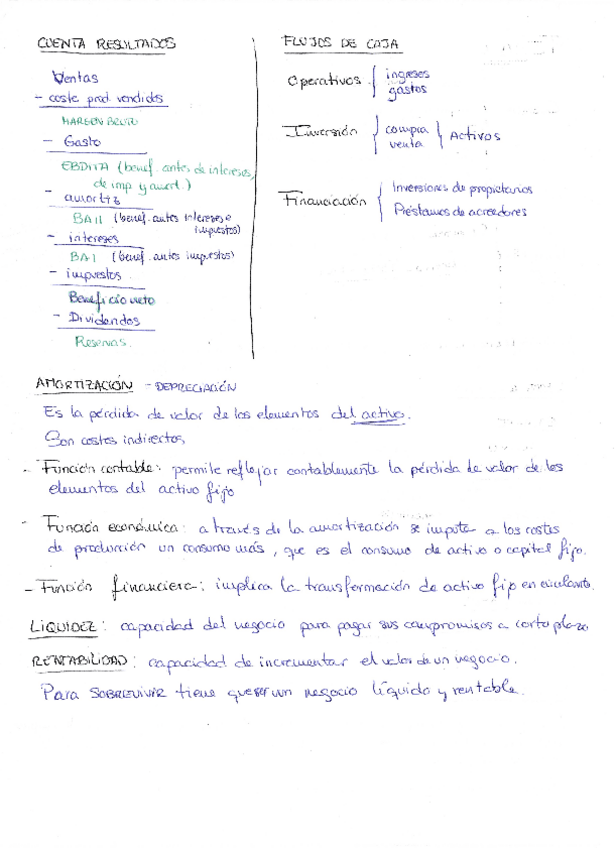 CUENTA RESULTADOS
Ventas
- coste prod. vendidos
MARGEN BRUTO
- Gasto
EBDITA (benef. antes de intereses,
de imp y amort.)
- amortiz
BAII (benef. antes intereses e
impuestos)
- intereses
BAI (benef. antes impuestos)
- impuestos
Beneficio neto
- Dividendos
Reservas.
FLUJOS DE CAJA
Operativos { ingresos
gastos
Inversión { compra
venta } Activos
Financiación { Inversiones de propietarios
Préstamos de acreedores
AMORTIZACIÓN - DEPRECIACIÓN
Es la pérdida de valor de los elementos del activo.
Son costes indirectos
- Función contable: permite reflejar contablemente la pérdida de valor de los
elementos del activo fijo
- Función económica: a través de la amortización se imputa a los costes
de producción un consumo más, que es el consumo de activo o capital fijo.
- Función financiera: implica la transformación de activo fijo en circulante.
LIQUIDEZ: capacidad del negocio para pagar sus compromisos a corto plazo
RENTABILIDAD: capacidad de incrementar el valor de un negocio.
Para SOBREVIVIR tiene que ser un negocio líquido y rentable.